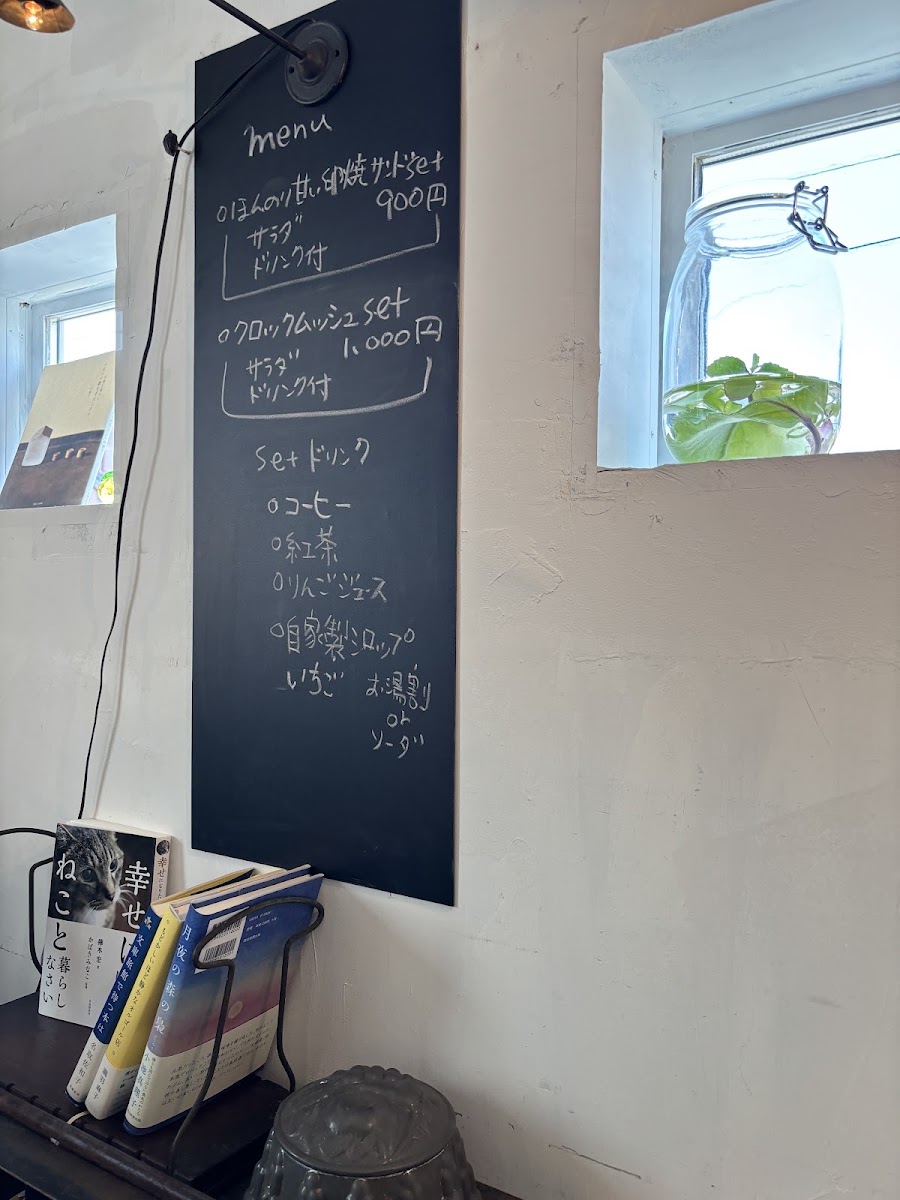 menu
○ほんのり甘い卵焼サンドset
900円
サラダ
ドリンク付
○クロックムッシュset
1,000円
サラダ
ドリンク付
setドリンク
○コーヒー
○紅茶
○りんごジュース
○自家製シロップ
いちご お湯割
or
ソーダ
幸せに
ねこと
暮らし
なさい
月夜の森の梟
小池真理子